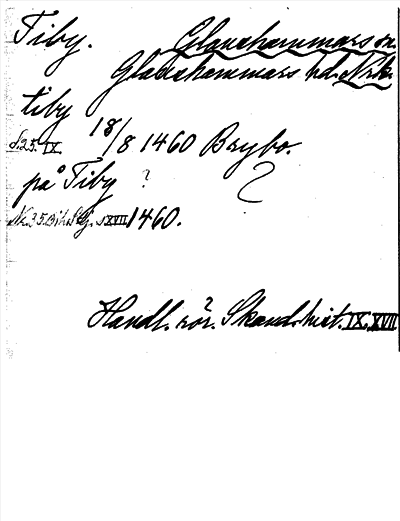 Tiby. Glanshammars sn.
Glanshammars hd. Nrk.
tiby 18/8 1460 Brybo.
s. 25. IX.
på Tiby ?
Nr. 35. Bih. s. XVII 1460.
Handl. rör. Skand. hist. IX, XVII